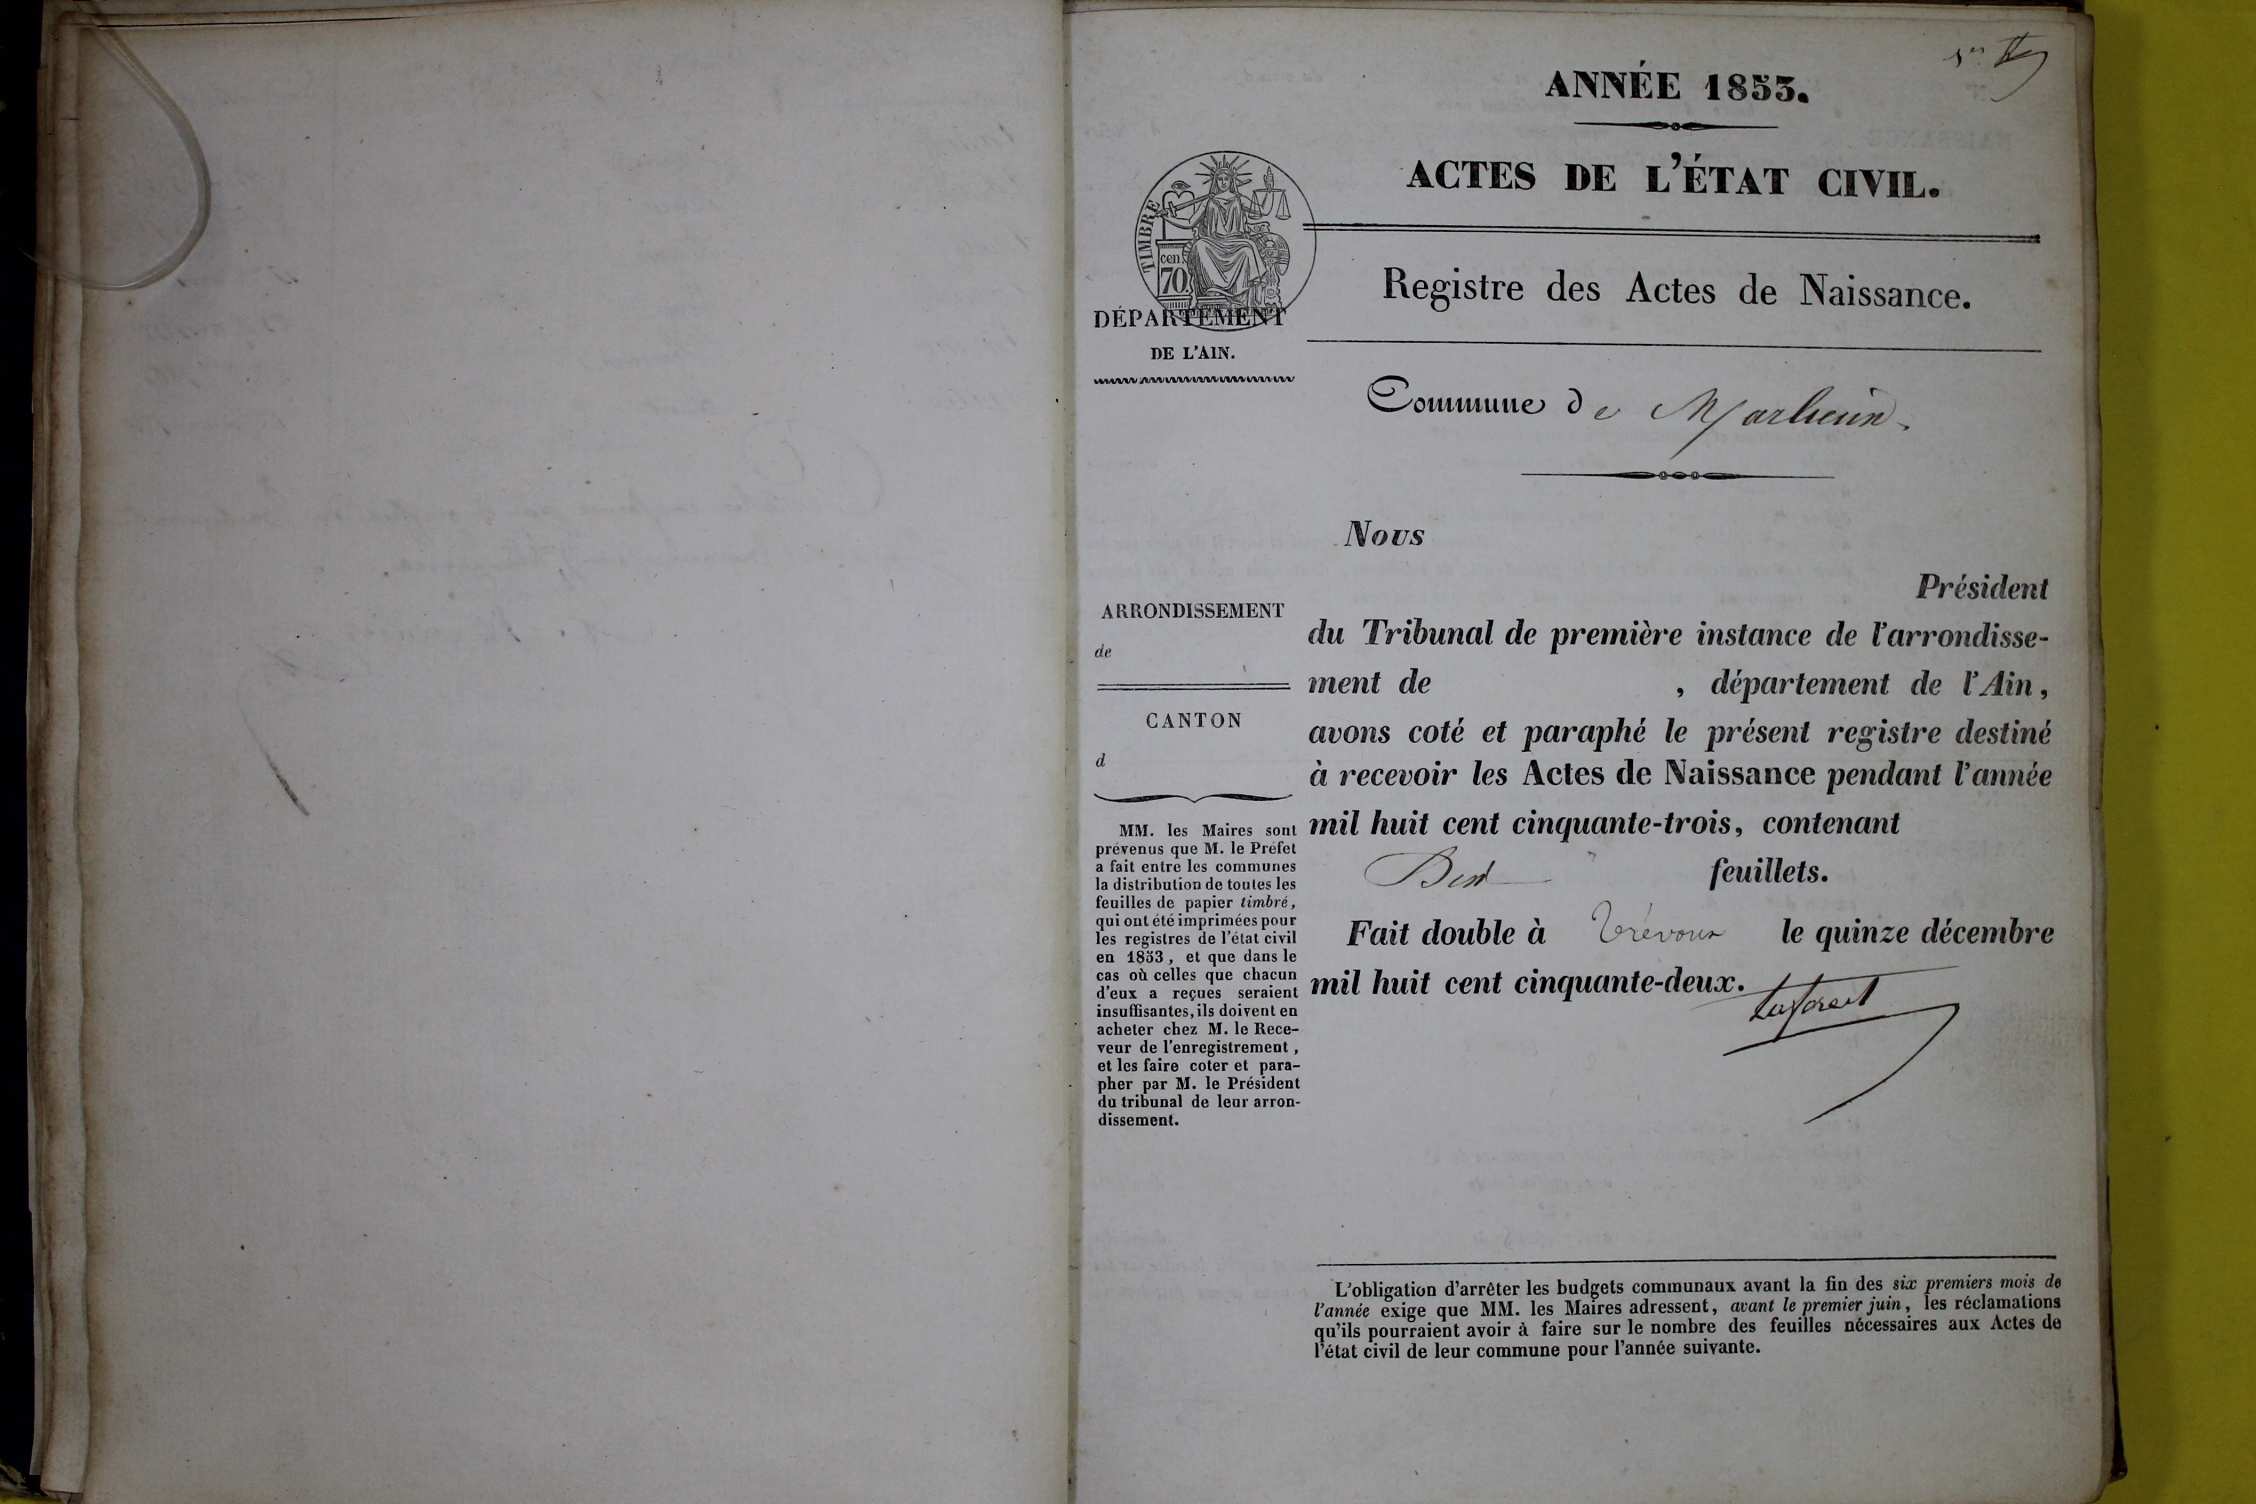 ANNÉE 1853.
ACTES DE L'ÉTAT CIVIL.
TIMBRE
cen.
70.
DÉPARTEMENT
DE L'AIN.
Registre des Actes de Naissance.
Commune de
ARRONDISSEMENT
de
CANTON
d
MM. les Maires sont
prévenus que M. le Préfet
a fait entre les communes
la distribution de toutes les
feuilles de papier timbré,
qui ont été imprimées pour
les registres de l'état civil
en 1853, et que dans le
cas où celles que chacun
d'eux a reçues seraient
insuffisantes, ils doivent en
acheter chez M. le Rece-
veur de l'enregistrement,
et les faire coter et para-
pher par M. le Président
du tribunal de leur arron-
dissement.
Nous
Président
du Tribunal de première instance de l'arrondisse-
ment de , département de l'Ain,
avons coté et paraphé le présent registre destiné
à recevoir les Actes de Naissance pendant l'année
mil huit cent cinquante-trois, contenant
feuillets.
Fait double à Trévoux le quinze décembre
mil huit cent cinquante-deux.
L'obligation d'arrêter les budgets communaux avant la fin des six premiers mois de
l'année exige que MM. les Maires adressent, avant le premier juin, les réclamations
qu'ils pourraient avoir à faire sur le nombre des feuilles nécessaires aux Actes de
l'état civil de leur commune pour l'année suivante.